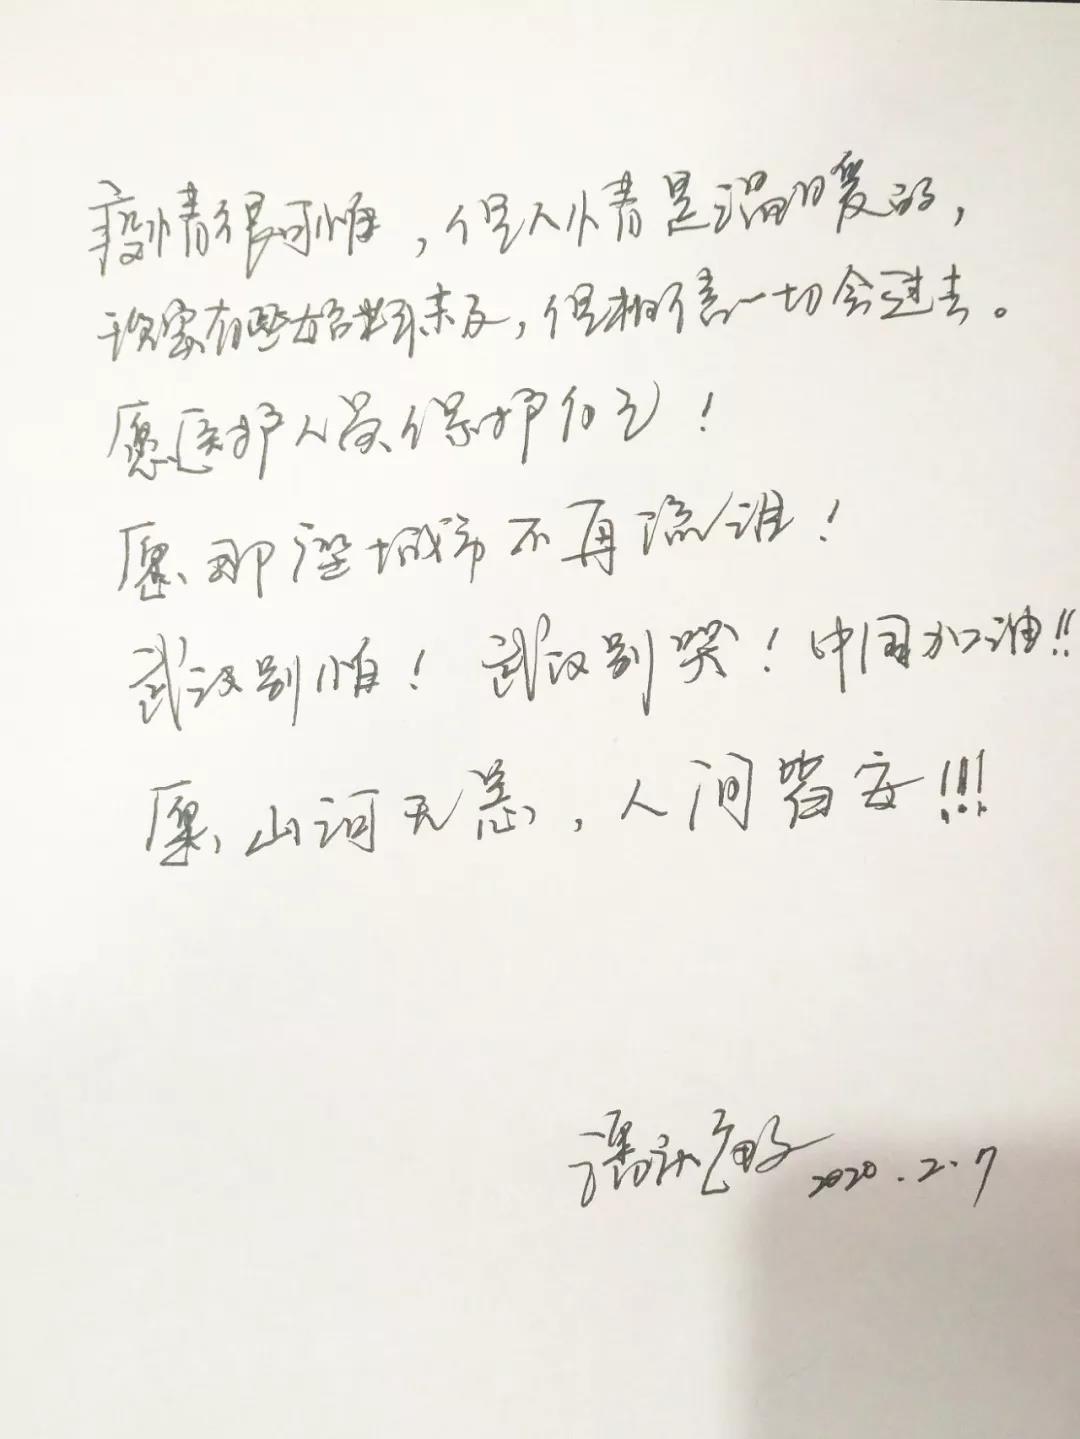 疫情很可怕，但人情是温暖的，
现实有些始料未及，但相信一切会过去。
愿医护人员保护自己！
愿那座城市不再流泪！
武汉别怕！武汉别哭！中国加油!!
愿山河无恙，人间皆安!!!
2020.2.7